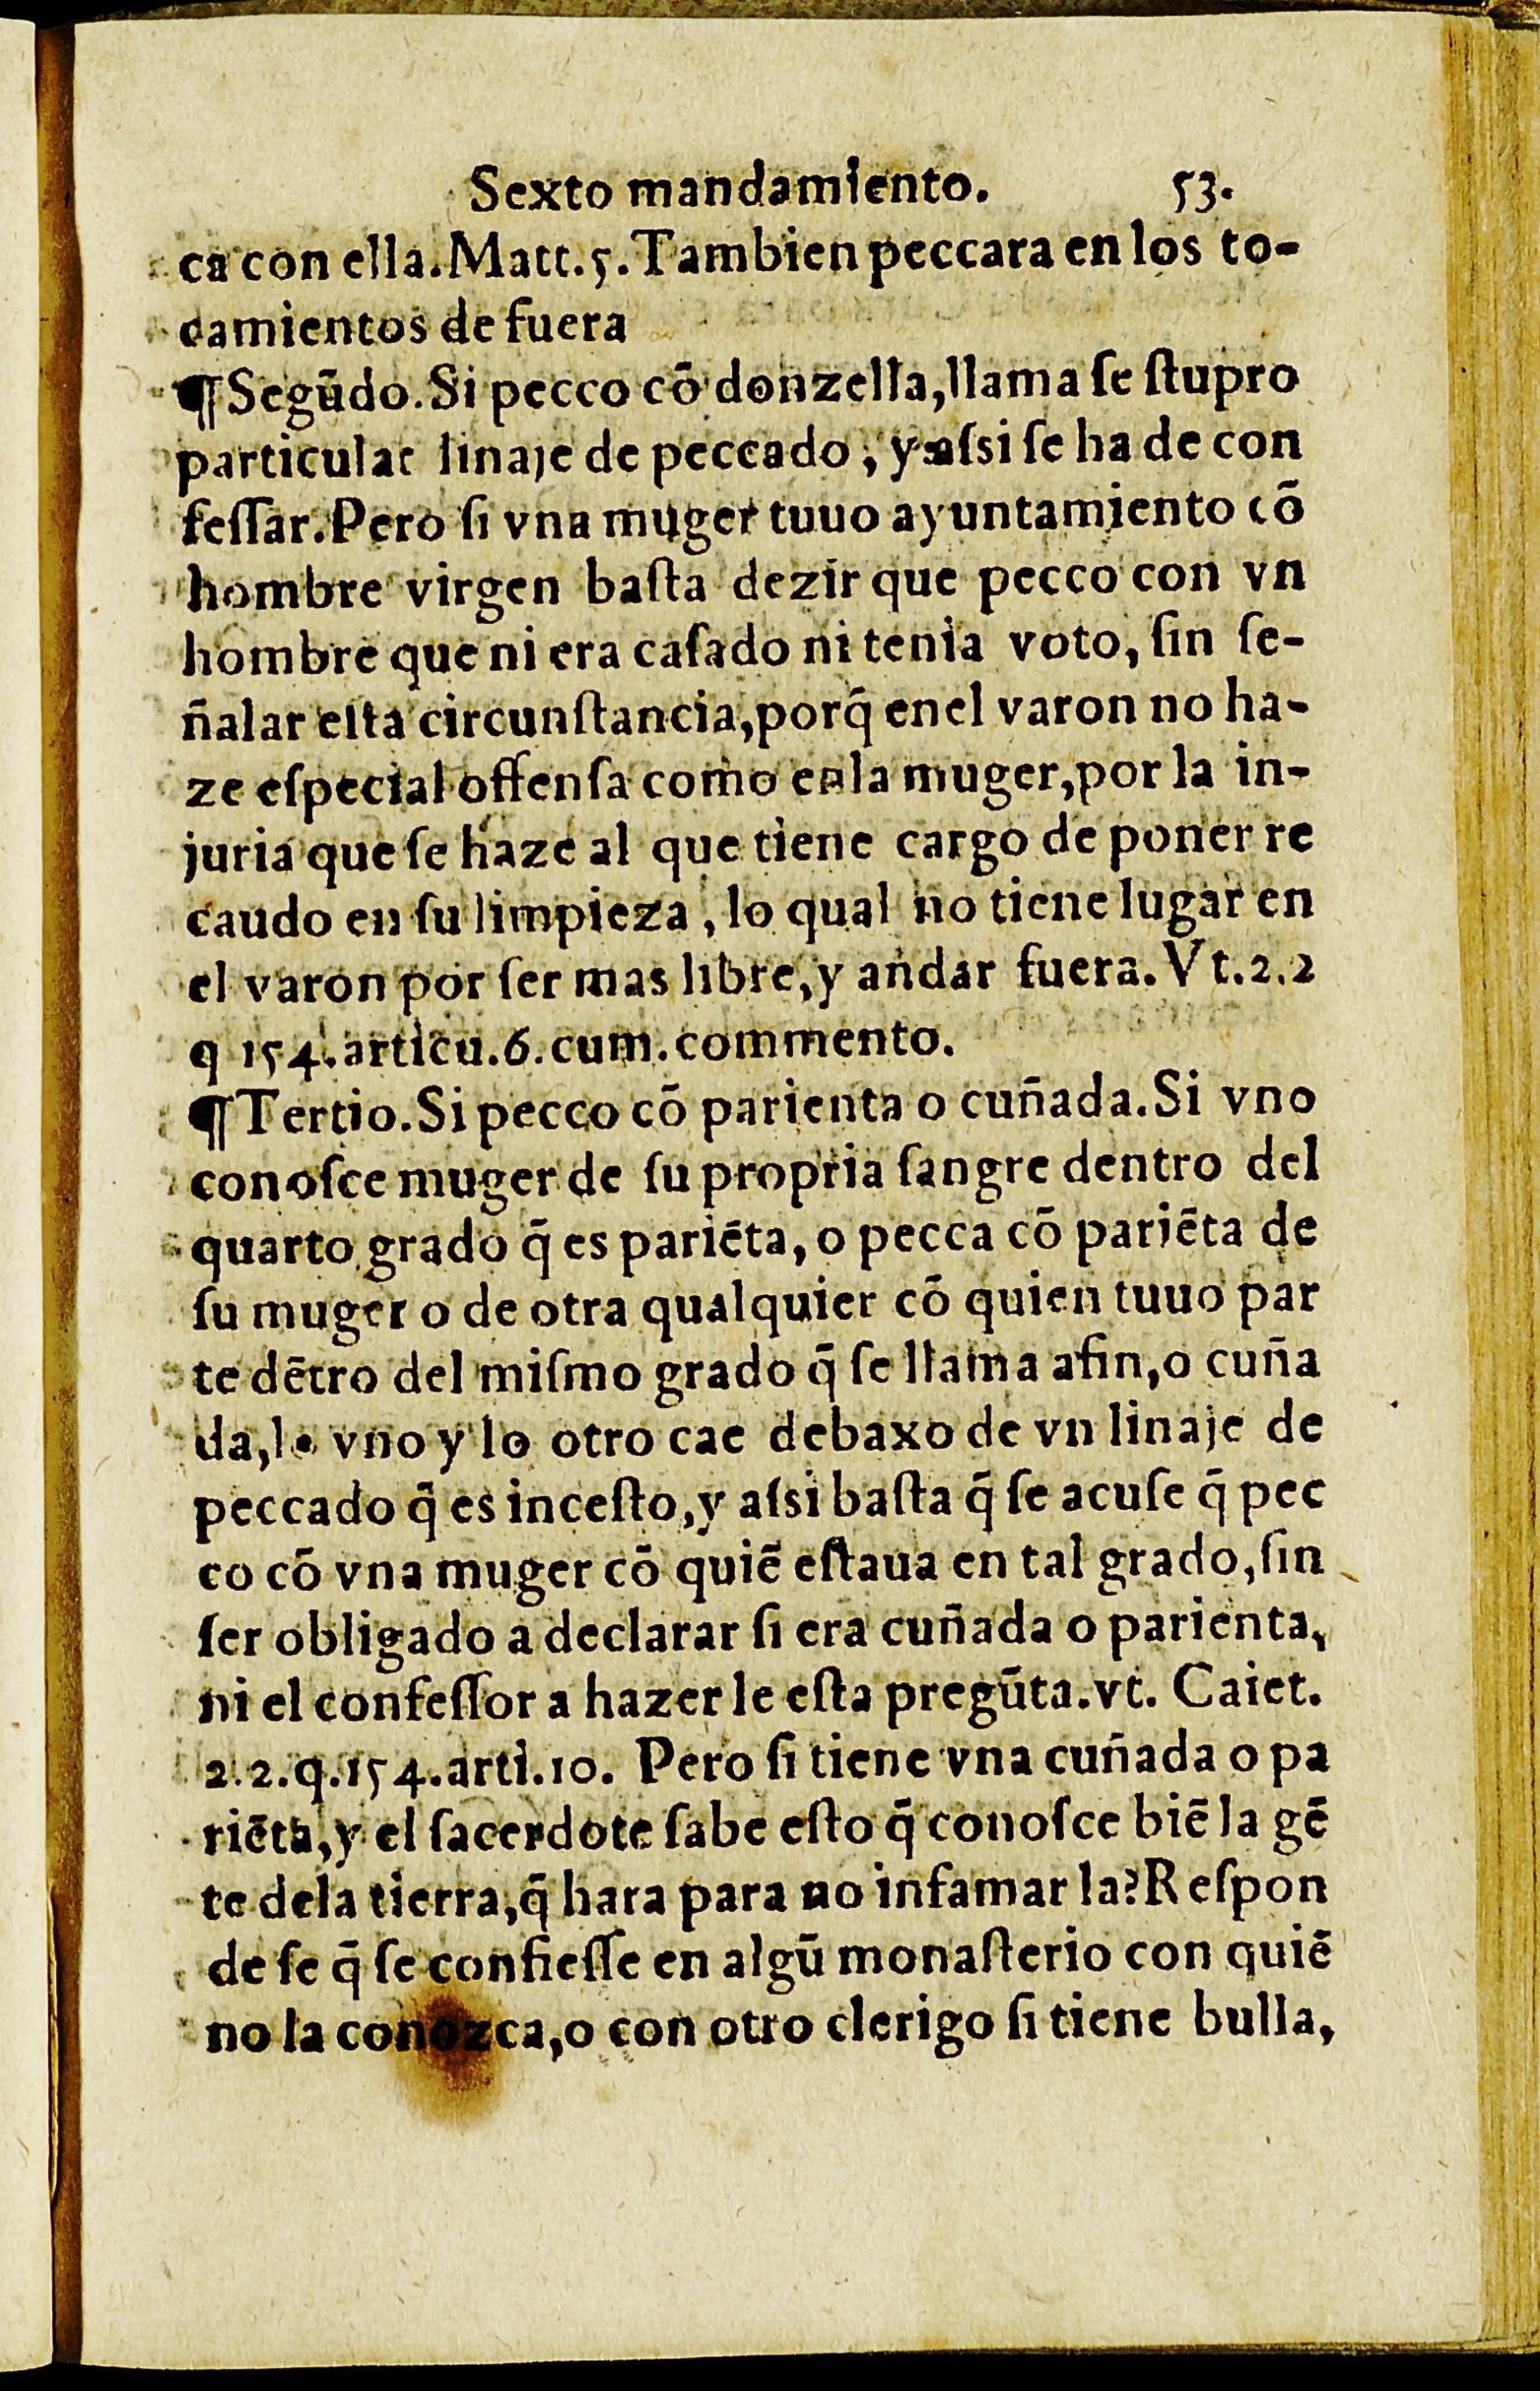 Sexto mandamiento. 53.
ca con ella. Matt. 5. Tambien peccara en los to-
camientos de fuera
¶ Segũdo. Si pecco cõ donzella, llama ſe ſtupro
particular linaje de peccado, y aſsi ſe ha de con
feſſar. Pero ſi vna muger tuuo ayuntamiento cõ
hombre virgen baſta dezir que pecco con vn
hombre que ni era caſado ni tenia voto, ſin ſe-
ñalar eſta circunſtancia, porq̃ enel varon no ha-
ze eſpecial offenſa como enla muger, por la in-
juria que ſe haze al que tiene cargo de poner re
caudo en ſu limpieza, lo qual no tiene lugar en
el varon por ſer mas libre, y andar fuera. Vt. 2. 2
q 154. articu. 6. cum. commento.
¶ Tertio. Si pecco cõ parienta o cuñada. Si vno
conoſce muger de ſu propria ſangre dentro del
quarto grado q̃ es pariẽta, o pecca cõ pariẽta de
ſu muger o de otra qualquier cõ quien tuuo par
te dẽtro del miſmo grado q̃ ſe llama afin, o cuña
da, lo vno y lo otro cae debaxo de vn linaje de
peccado q̃ es inceſto, y aſsi baſta q̃ ſe acuſe q̃ pec
co cõ vna muger cõ quiẽ eſtaua en tal grado, ſin
ſer obligado a declarar ſi era cuñada o parienta,
ni el confeſſor a hazer le eſta pregũta. vt. Caiet.
2. 2. q. 154. arti. 10. Pero ſi tiene vna cuñada o pa
riẽta, y el ſacerdote ſabe eſto q̃ conoſce biẽ la gẽ
te dela tierra, q̃ hara para no infamar la? Reſpon
de ſe q̃ ſe confieſſe en algũ monaſterio con quiẽ
no la conozca, o con otro clerigo ſi tiene bulla,